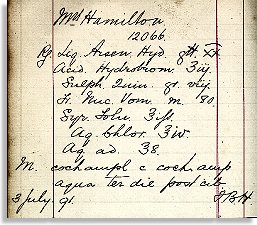 Mrs Hamilton
12066.
Rx Liq. Arsen. Hyd. gtt. XX.
Acid. Hydrobrom. ʒiij.
Sulph. Quin. gr. viij.
Tr. Nuc. Vom. m. 80.
Syr. Tolu. ʒ
Aq. Chlor. ʒiv.
Aq. ad. ℥8.
M. cochampl c coch. amp
aqua ter die post cib
3 July 91.